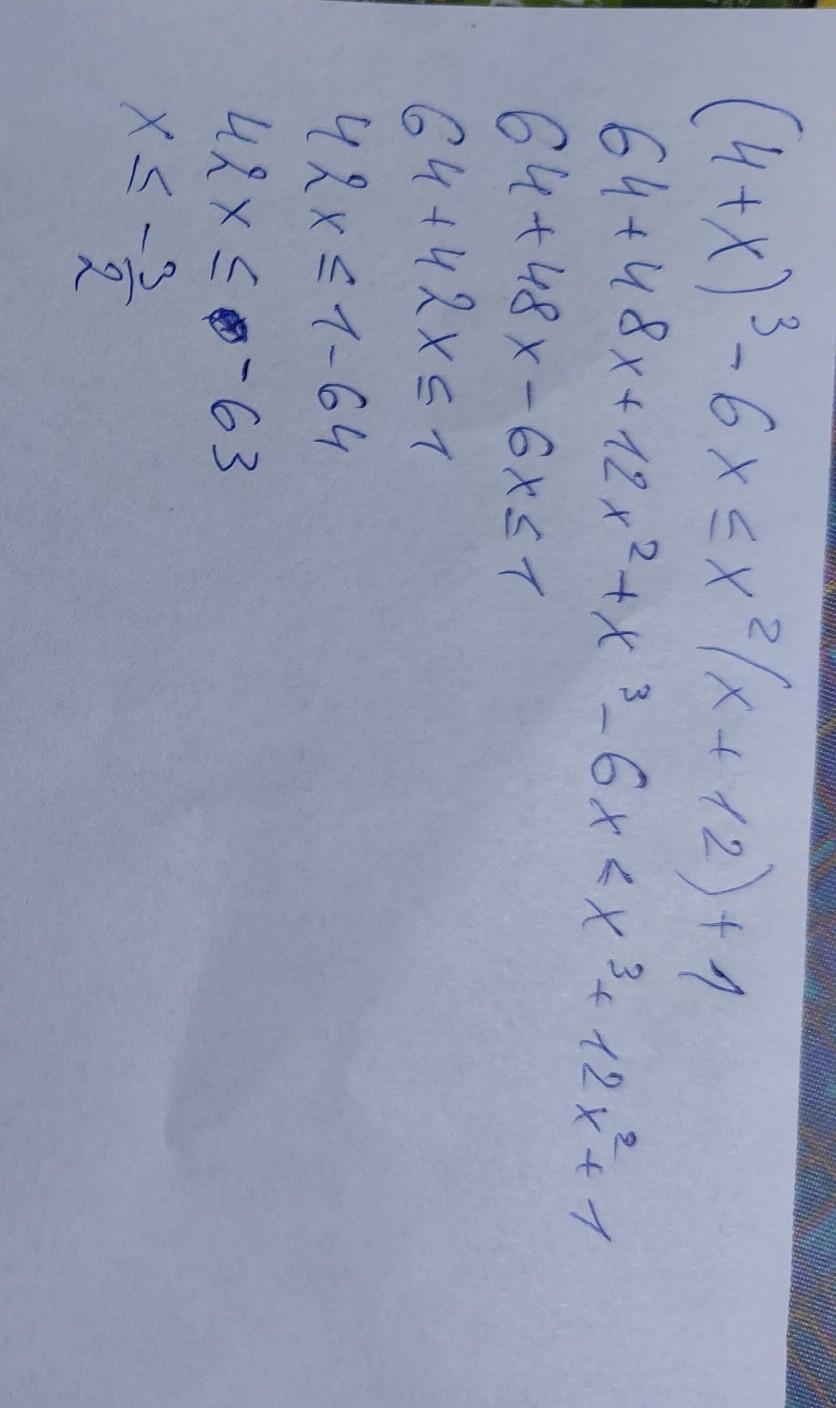 (4+x)³-6x≤x²(x+12)+1
64+48x+12x²+x³-6x≤x³+12x²+1
64+48x-6x≤1
64+42x≤1
42x≤1-64
42x≤-63
x≤-3/2